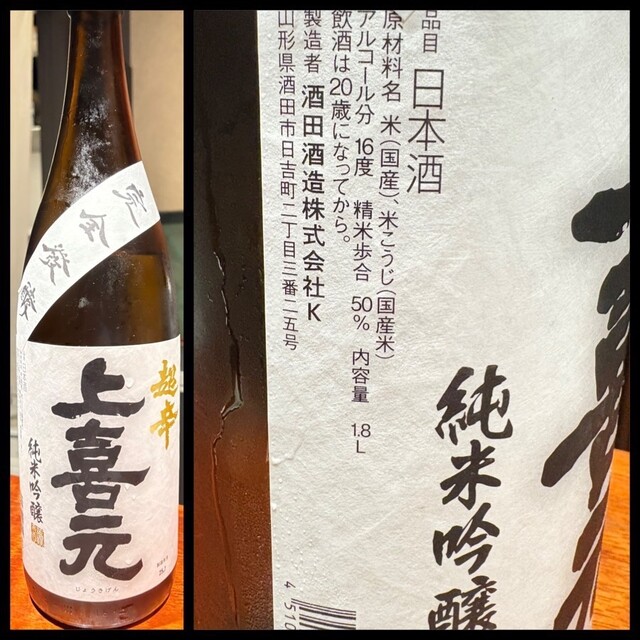 完全発酵
超辛
上喜元
純米吟醸
じょうきげん
品目 日本酒
原材料名 米(国産)、米こうじ(国産米)
アルコール分 16度 精米歩合 50% 内容量 1.8L
飲酒は20歳になってから。
製造者 酒田酒造株式会社K
山形県酒田市日吉町二丁目三番二五号
純米吟醸
4 510